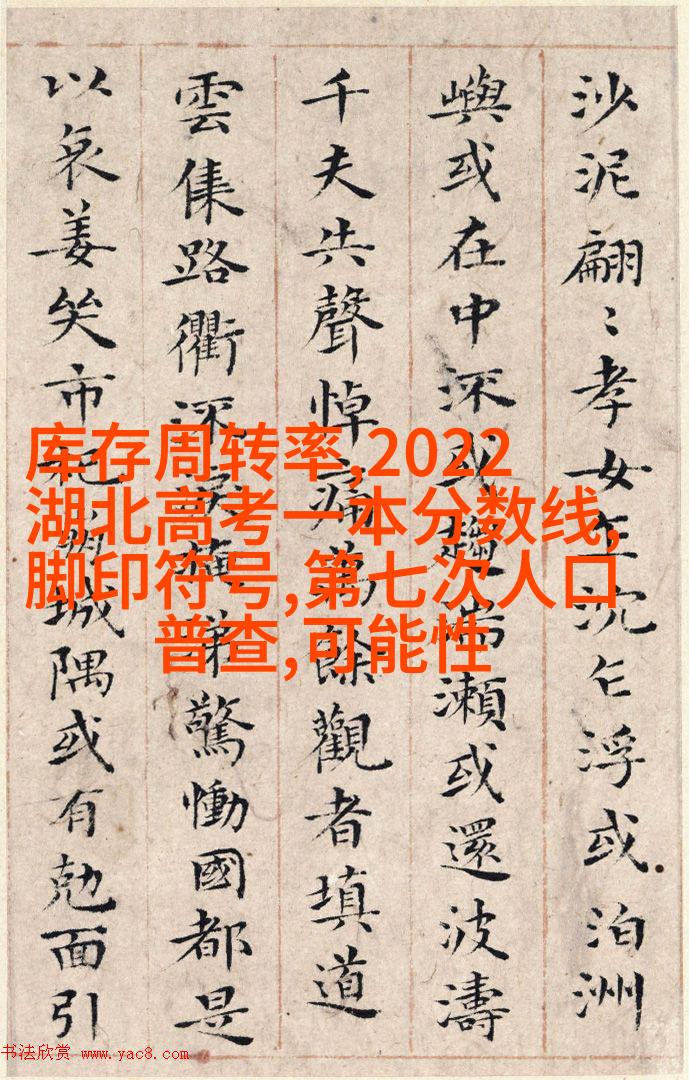 沙泥翩〻孝女乍沉乍浮或泊洲
嶼或在中深或趨湍瀨或還波濤
千夫共聲悼痛萬餘觀者填道
雲集路衢流淚掩涕驚慟國都是
以哀姜哭市杞崩城隅或有尅面引
库存周转率,2022
湖北高考一本分数线,
脚印符号,第七次人口
普查,可能性
书法欣赏 www.yac8.com